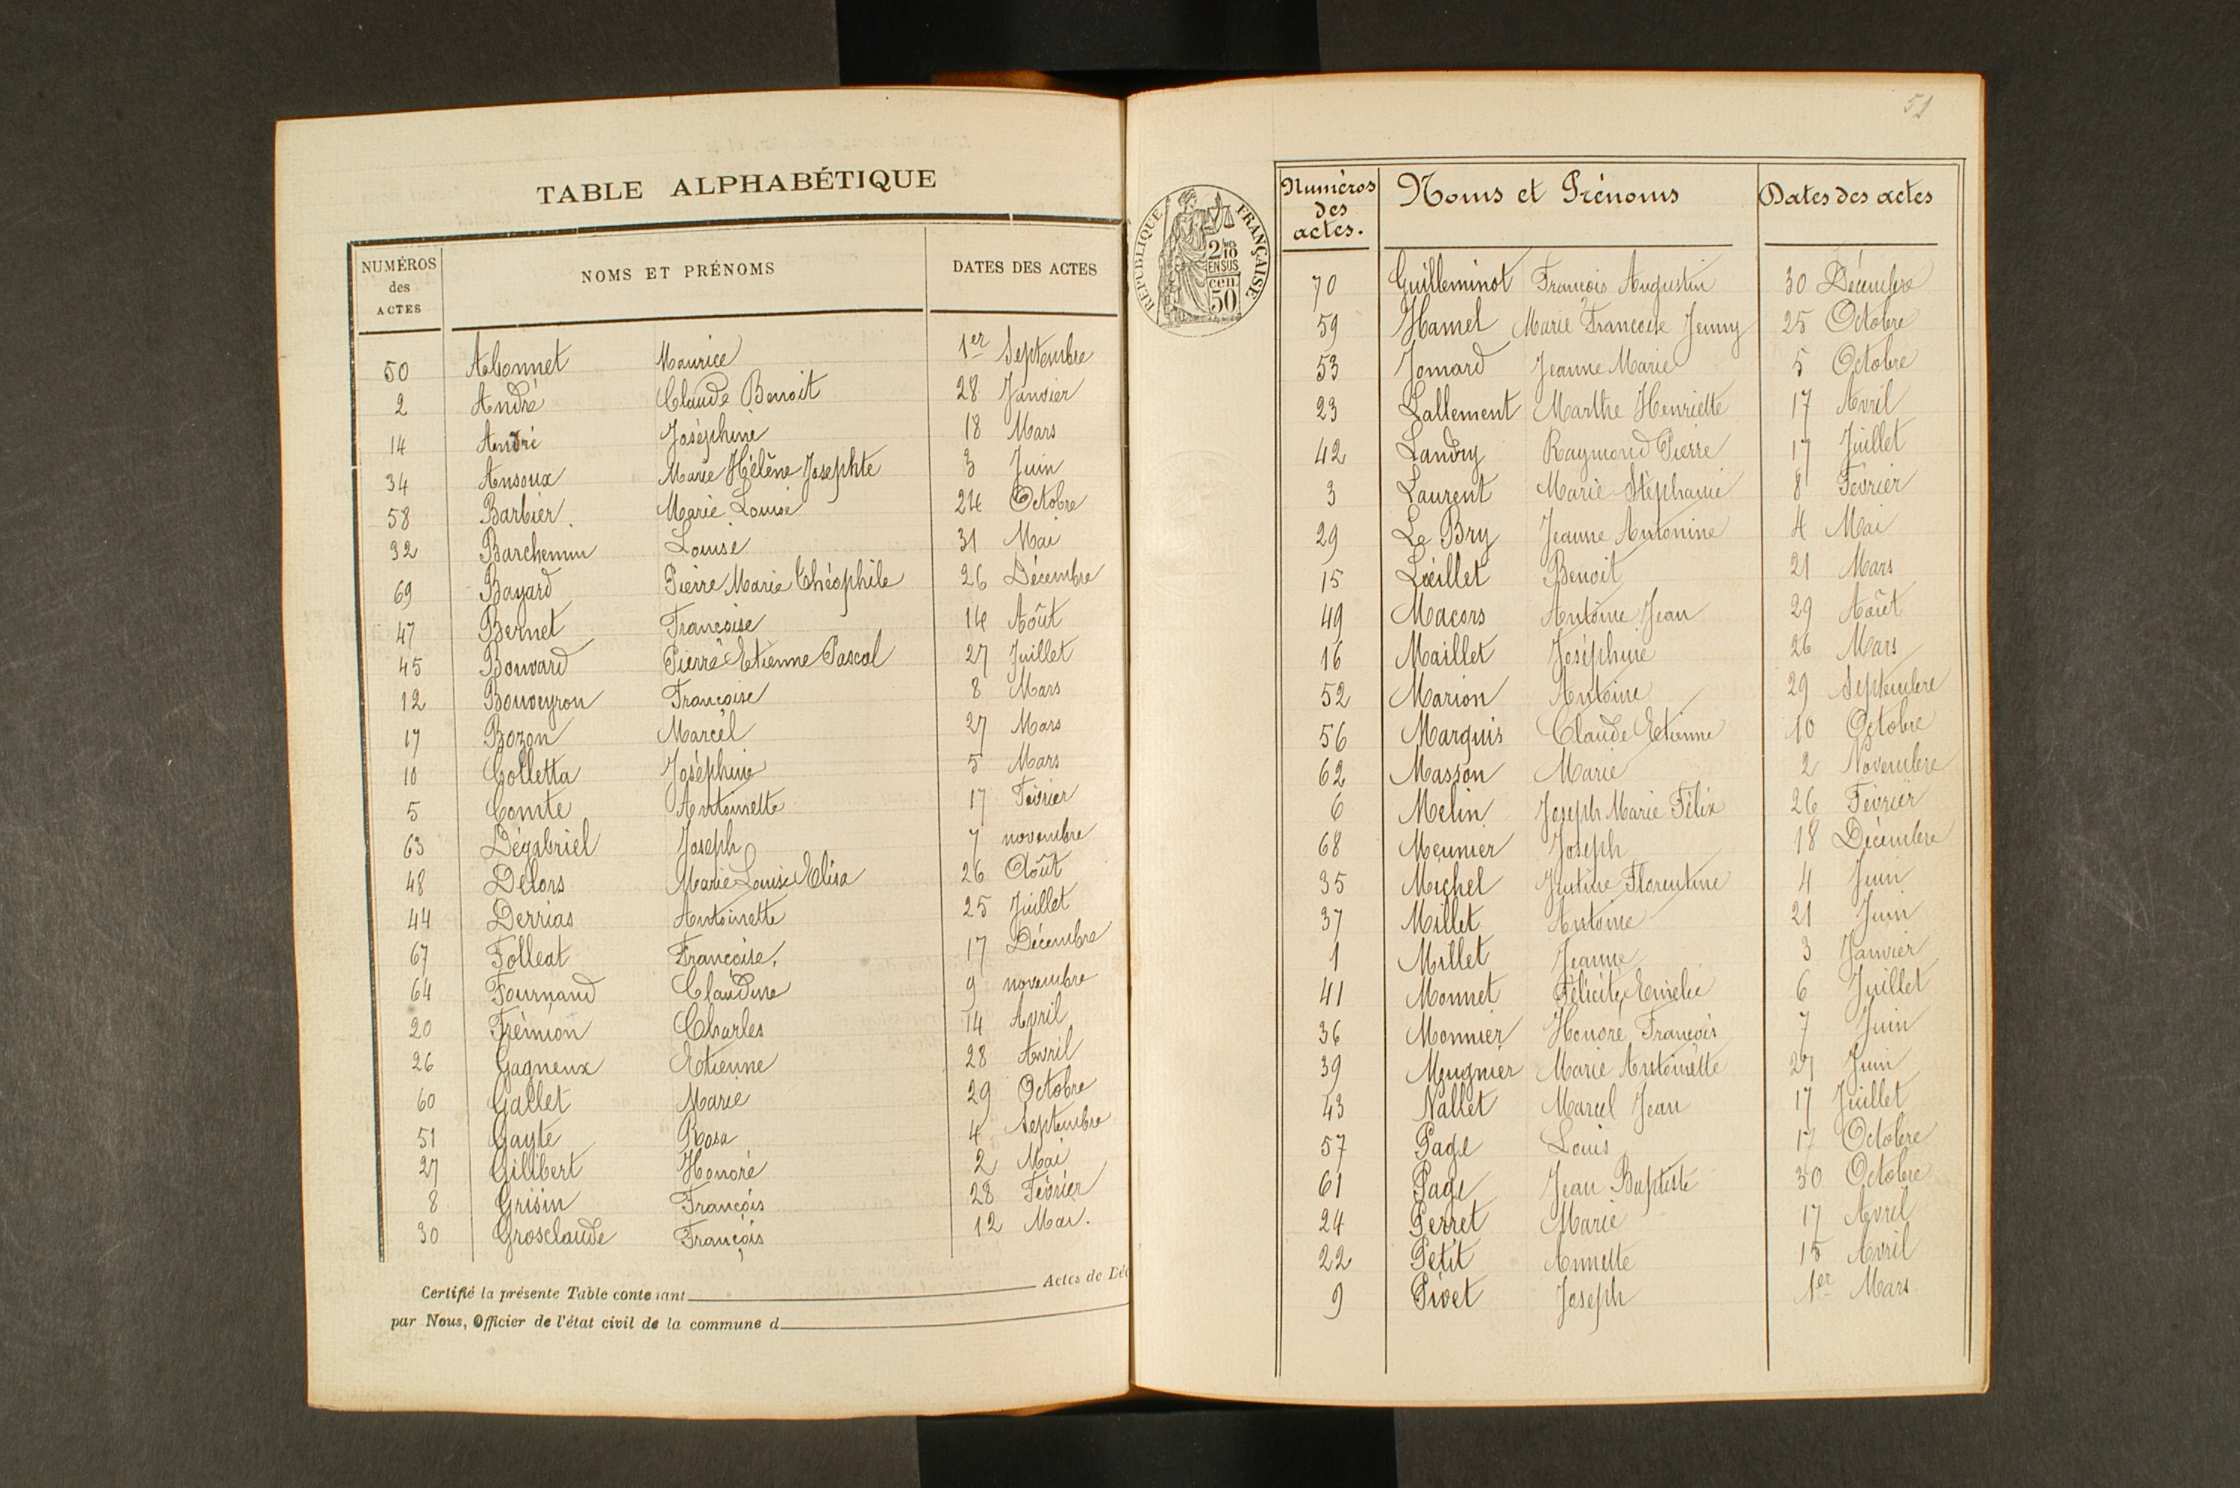 TABLE ALPHABÉTIQUE
NUMÉROS des ACTES NOMS ET PRÉNOMS DATES DES ACTES
50 Abonnet Maurice 1er Septembre
2 André Claude Benoit 28 Janvier
14 André Joséphine 18 Mars
34 Ansoux Marie Hélène Josephte 3 Juin
58 Barbier Marie Louise 24 Octobre
32 Barchemin Louise 31 Mai
69 Bayard Pierre Marie Théophile 26 Décembre
47 Bernet Françoise 14 Août
45 Bouvard Pierre Etienne Pascal 27 Juillet
12 Bouveyron Françoise 8 Mars
17 Bozon Marcel 27 Mars
10 Colletta Joséphine 5 Mars
5 Comte Antoinette 17 Février
63 Dégabriel Joseph 7 novembre
48 Delors Marie Louise Elisa 26 Août
44 Derrias Antoinette 25 Juillet
67 Folleat Françoise. 17 Décembre
64 Fournand Claudine 9 novembre
20 Frémion Charles 14 Avril
26 Gagneux Etienne 28 Avril
60 Gallet Marie 29 Octobre
51 Gayte Rosa 4 Septembre
27 Gilibert Honoré 2 Mai
8 Grisin François 28 Février
30 Grosclaude François 12 Mai.
Certifié la présente Table contenant Actes de Déc
par Nous, Officier de l'état civil de la commune d
51
RÉPUBLIQUE FRANÇAISE
2/10 EN SUS
cen. 50
Numéros des actes. Noms et Prénoms Dates des actes
70 Guilleminot François Augustin 30 Décembre
59 Hamel Marie Françoise Jenny 25 Octobre
53 Jomard Jeanne Marie 5 Octobre
23 Lallement Marthe Henriette 17 Avril
42 Landry Raymond Pierre 17 Juillet
3 Laurent Marie Stéphanie 8 Février
29 Le Bry Jeanne Antonine 4 Mai
15 Lœillet Benoit 21 Mars
49 Macors Antoine Jean 29 Août
16 Maillet Joséphine 26 Mars
52 Marion Antoine 29 Septembre
56 Marquis Claude Etienne 10 Octobre
62 Masson Marie 2 Novembre
6 Melin Joseph Marie Félix 26 Février
68 Meunier Joseph 18 Décembre
35 Michel Justine Florentine 4 Juin
37 Millet Antoine 21 Juin
1 Millet Jeanne 3 Janvier
41 Monnet Félicité Emélie 6 Juillet
36 Monnier Honoré François 7 Juin
39 Mugnier Marie Antoinette 27 Juin
43 Nallet Marcel Jean 17 Juillet
57 Page Louis 17 Octobre
61 Page Jean Baptiste 30 Octobre
24 Perret Marie 17 Avril
22 Petit Annette 15 Avril
9 Pivet Joseph 1er Mars